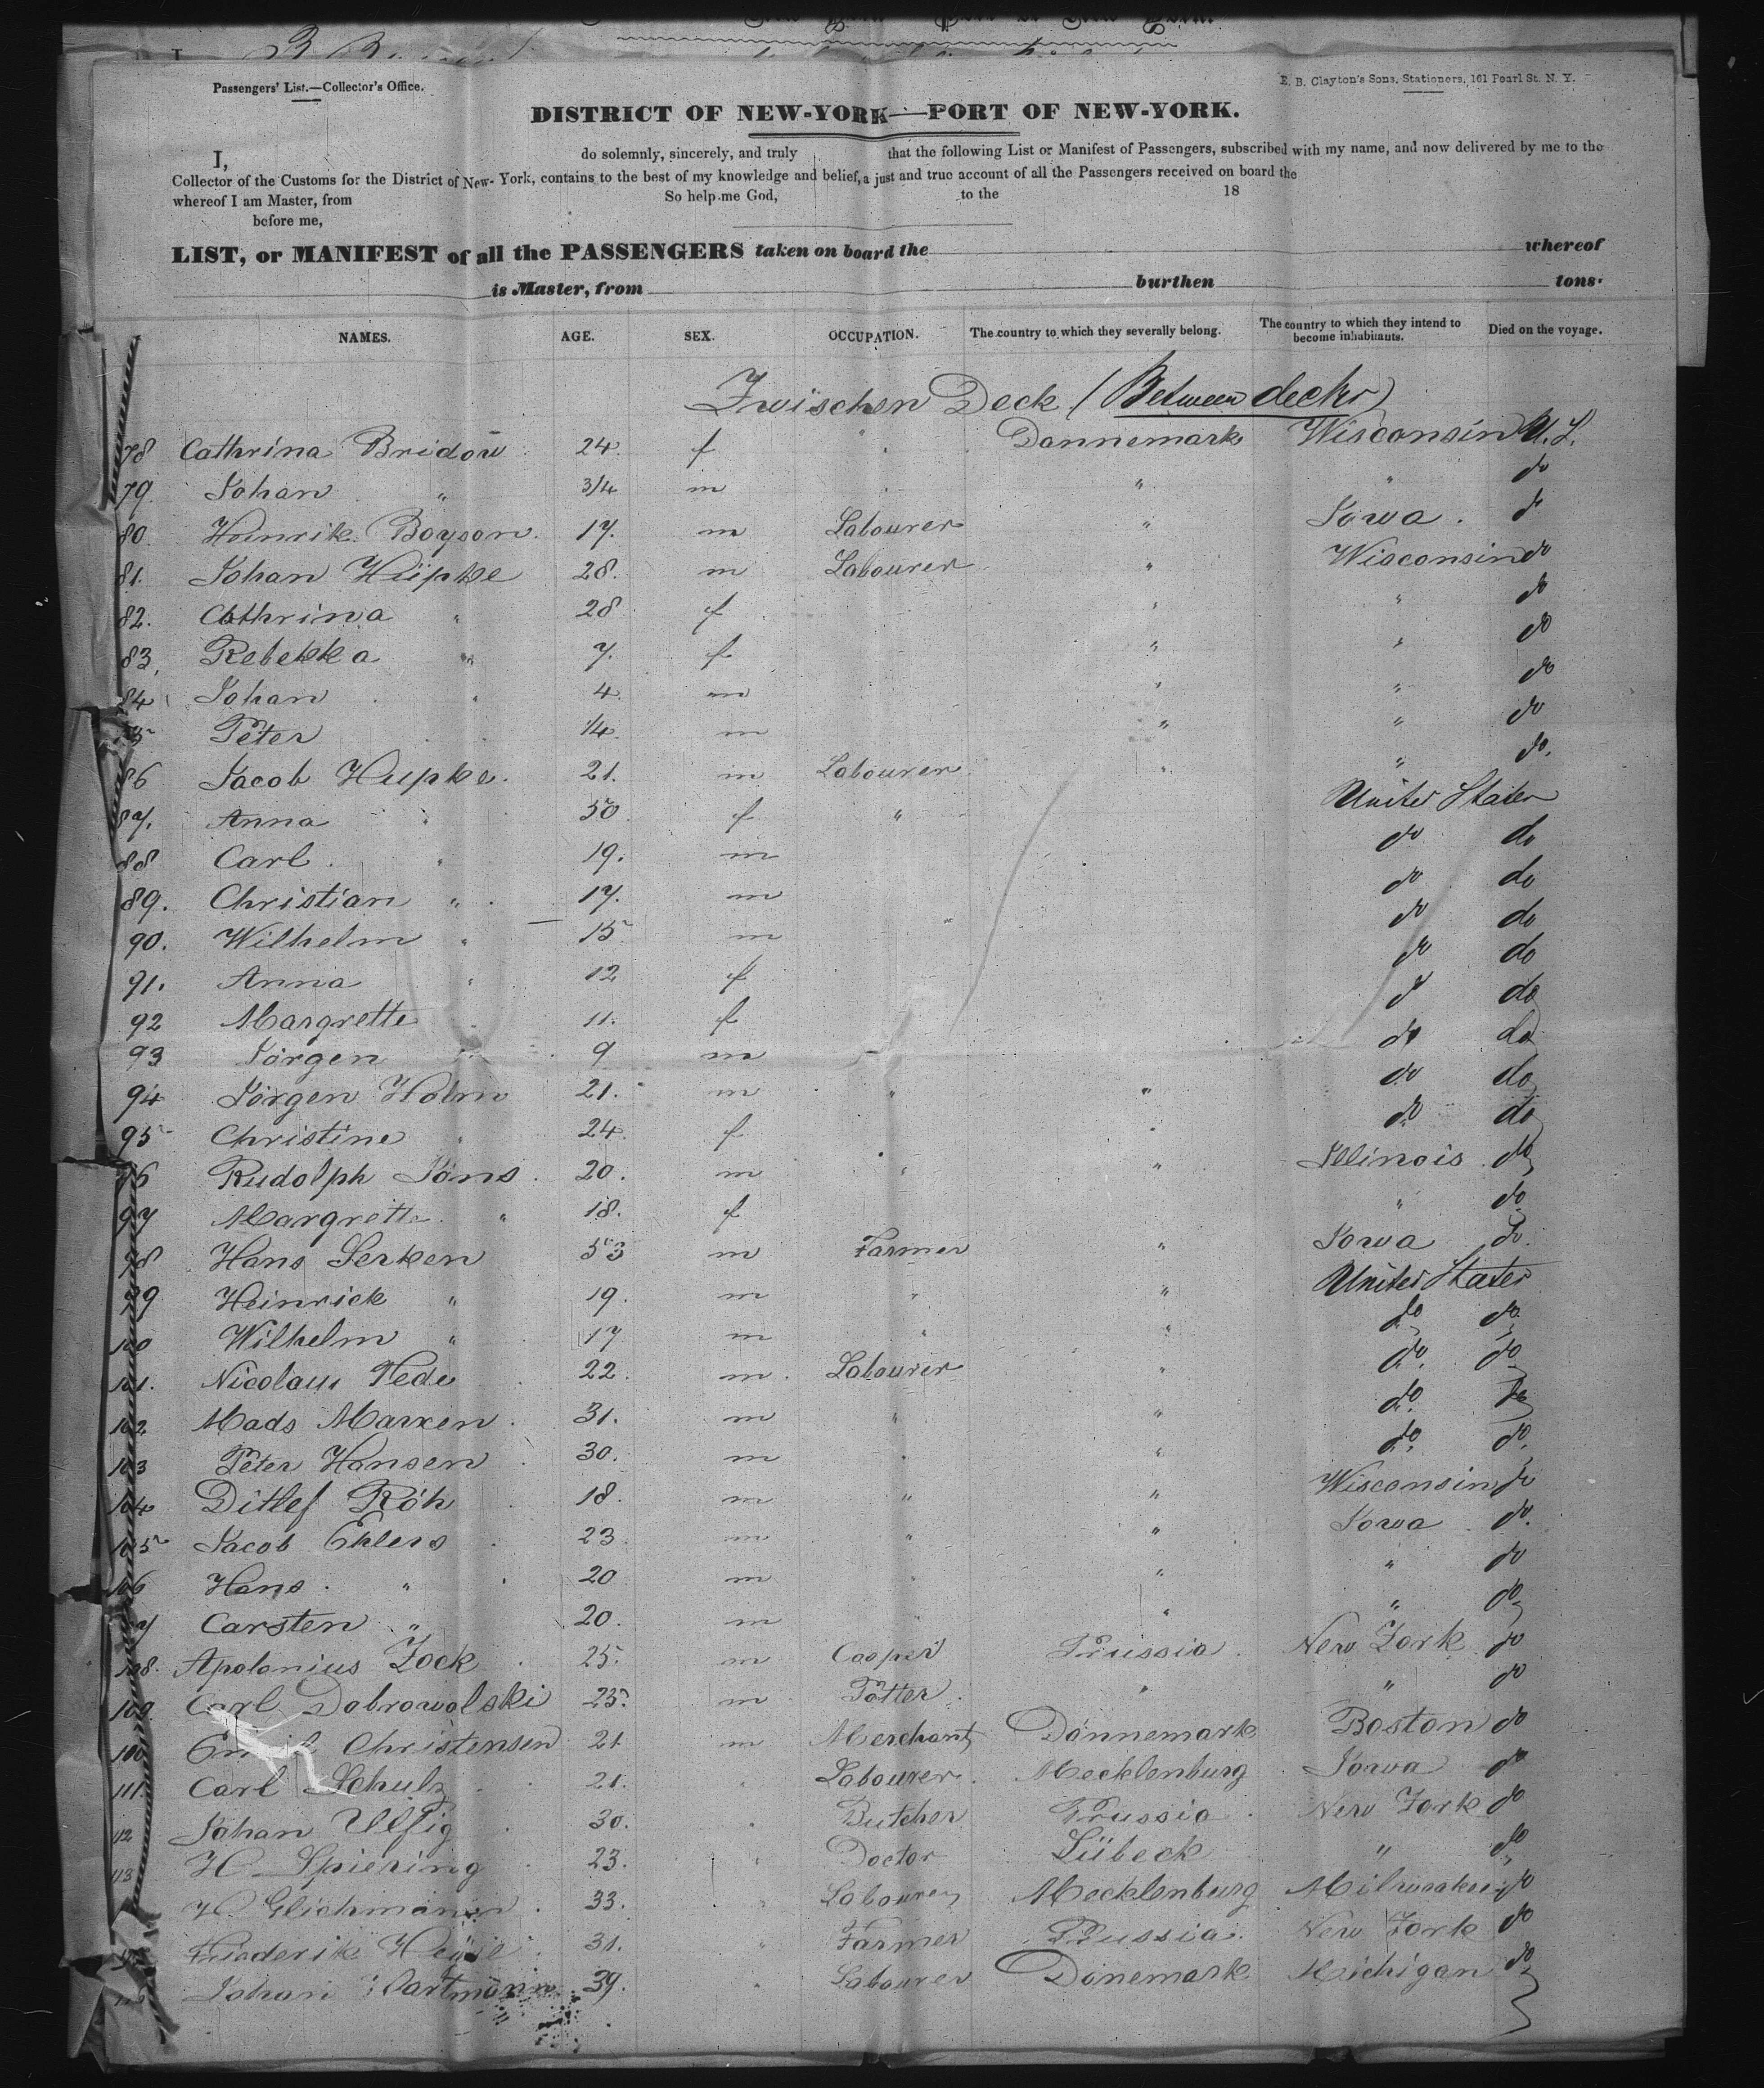 Passengers' List.—Collector's Office.
E. B. Clayton's Sons, Stationers, 161 Pearl St. N. Y.
DISTRICT OF NEW-YORK—PORT OF NEW-YORK.
I, do solemnly, sincerely, and truly that the following List or Manifest of Passengers, subscribed with my name, and now delivered by me to the
Collector of the Customs for the District of New-York, contains to the best of my knowledge and belief, a just and true account of all the Passengers received on board the
whereof I am Master, from So help me God, to the 18
before me,
LIST, or MANIFEST of all the PASSENGERS taken on board the whereof
is Master, from burthen tons.
NAMES. AGE. SEX. OCCUPATION. The country to which they severally belong. The country to which they intend to become inhabitants. Died on the voyage.
Zwischen Deck (Between decks)
78 Cathrina Bridow 24. f " Dannemark Wisconsin U.S.
79 Johan " 3/4 m " " " do
80. Heinrik Boyson. 17. m Labourer " Iowa. do
81. Johan Hüpke 28. m Labourer " Wisconsin do
82. Cathrina " 28 f " " do
83, Rebekka " 7. f " " do
84 Johan " 4. m " " do
85 Peter 1/4. m " " do
86 Jacob Hupke. 21. m Labourer " " do.
87. Anna " 50 f " United States
88 Carl. " 19. m do do
89. Christian " 17. m do do
90. Wilhelm " 15 m " do do
91. Anna " 12 f do do
92 Margrette " 11. f do do
93 Jörgen " 9 m do do
94 Jörgen Holm 21. m " " do do
95 Christine " 24. f " do do
96 Rudolph Jöns. 20. m " " Illinois. do
97 Margrette " 18. f " do
98 Hans Serken 53 m Farmer " Iowa do.
99 Heinrick " 19. m " " United States
100 Wilhelm " 17 m " " do do
101. Nicolaus Thede 22. m. Labourer " do. do
102 Mads Marxen. 31. m " " do. do
103 Peter Hansen 30. m " " do. do.
104 Ditlef Röh 18. m " " Wisconsin do
105 Jacob Ehlers 23 m " " Iowa do.
106 Hans. " 20 m " " " do
107 Carsten " 20. m " " " do
108. Apolonius Zock 25. m Cooper Prussia. New York do
109. Carl Dobrowolski 25. m Potter. " " do
110 Emil Christensen 21 m Merchant Dännemark Boston do
111. Carl Schulz 21. " Labourer. Mecklenburg Iowa do
112 Johan Ulfig 30. " Butcher Prussia. New York do
113 H. Spiering 23. " Doctor Lübeck " do
H. Glichmann. 33. " Labourer Mecklenburg Milwaukee do
Friederik 31. " Farmer Prussia. New York do
Johan Hartmann 39. " Labourer Dänemark Michigan do